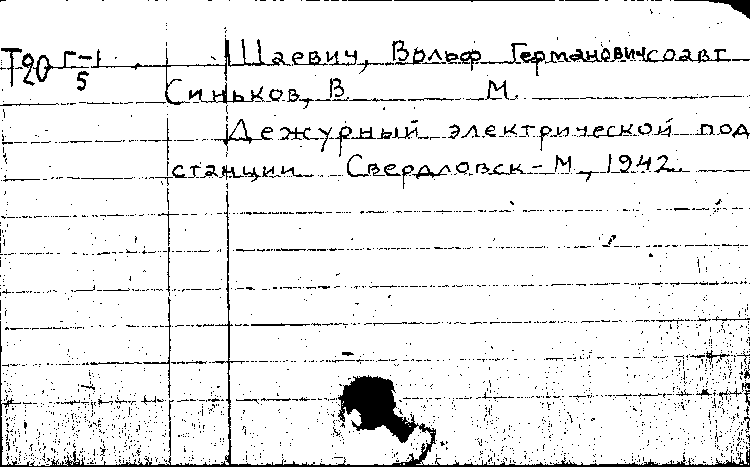 Т20 Г-1/5 Шаевич, Вольф Германович соавт
Синьков, В. М.
Дежурный электрической под
станции Свердловск-М., 1942.